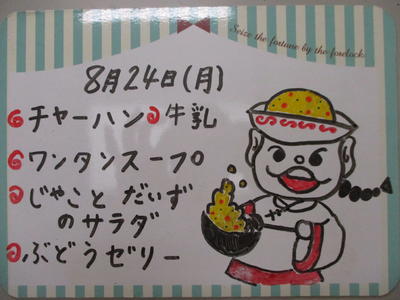 Seize the fortune by the forelock.
8月24日(月)
チャーハン 牛乳
ワンタンスープ
じゃこと だいず
のサラダ
ぶどうゼリー